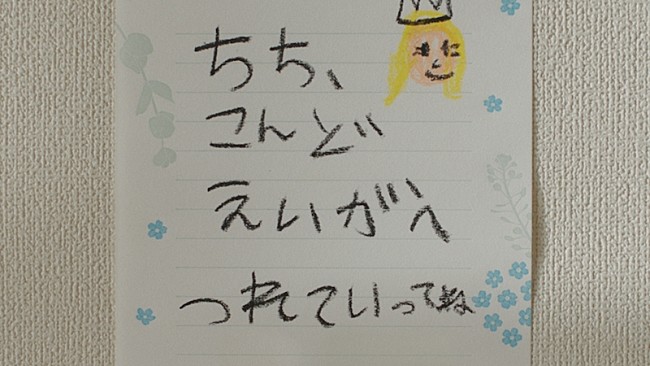 ちち、
こんど
えいがへ
つれていってね